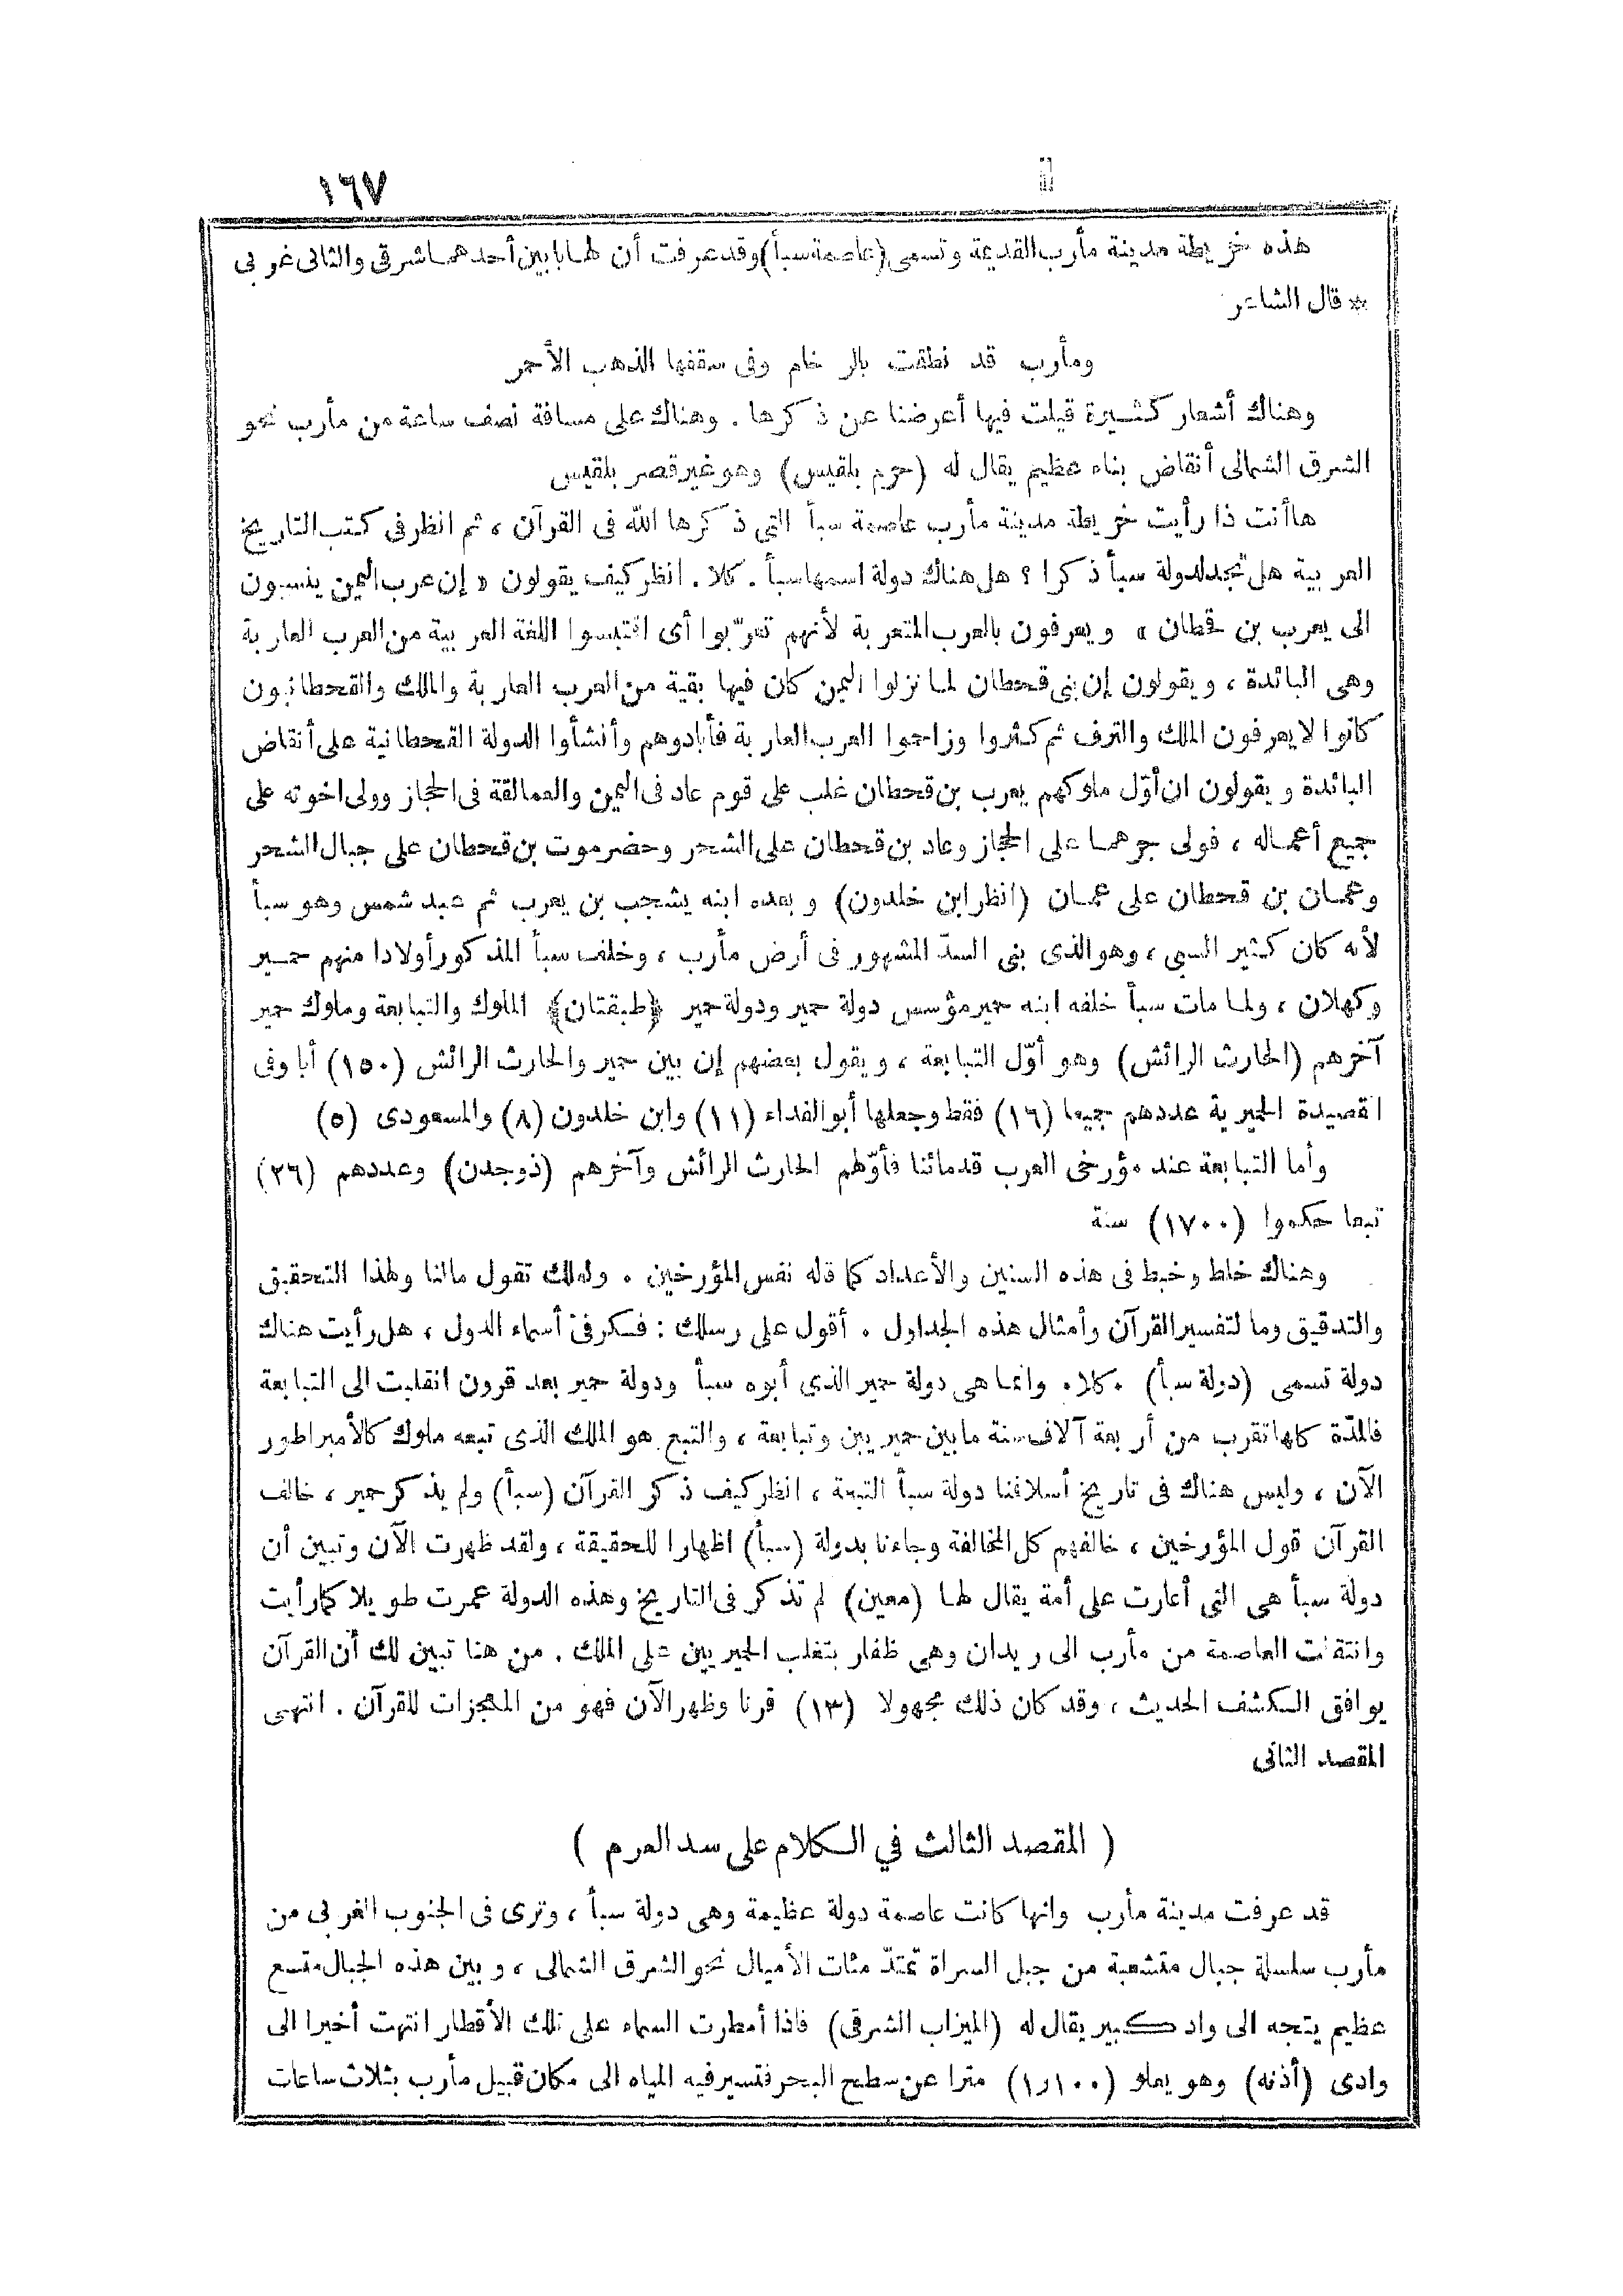 ١٦٧
هذه خريطة مدينة مأرب القديمة وتسمى (عاصمة سبأ) وقد عرفت أن لها بابين أحدهما شرقى والثانى غربى
* قال الشاعر
ومأرب قد نطقت بالرخام وفى سقفها الذهب الأحمر
وهناك أشعار كثيرة قيلت فيها أعرضنا عن ذكرها . وهناك على مسافة نصف ساعة من مأرب نحو
الشرق الشمالى أنقاض بناء عظيم يقال له (حرم بلقيس) وهو غير قصر بلقيس
هاأنت ذا رأيت خريطة مدينة مأرب عاصمة سبأ التى ذكرها الله فى القرآن ، ثم انظر فى كتب التاريخ
العربية هل تجد لدولة سبأ ذكرا ؟ هل هناك دولة اسمها سبأ . كلا . انظر كيف يقولون « إن عرب اليمن ينسبون
الى يعرب بن قحطان » ويعرفون بالعرب المتعربة لأنهم تعرّبوا أى اقتبسوا اللغة العربية من العرب العاربة
وهى البائدة ، ويقولون إن بنى قحطان لما نزلوا اليمن كان فيها بقية من العرب العاربة والملك والقحطانيون
كانوا لايعرفون الملك والترف ثم كثروا وزاحموا العرب العاربة فأبادوهم وأنشأوا الدولة القحطانية على أنقاض
البائدة ويقولون ان أوّل ملوكهم يعرب بن قحطان غلب على قوم عاد فى اليمن والعمالقة فى الحجاز وولى اخوته على
جميع أعماله ، فولى جرهما على الحجاز وعاد بن قحطان على الشحر وحضرموت بن قحطان على جبال الشحر
وعمان بن قحطان على عمان (انظر ابن خلدون) وبعده ابنه يشجب بن يعرب ثم عبد شمس وهو سبأ
لأنه كان كثير السبى ، وهو الذى بنى السدّ المشهور فى أرض مأرب ، وخلف سبأ المذكور أولادا منهم حمير
وكهلان ، ولما مات سبأ خلفه ابنه حمير مؤسس دولة حمير ودولة حمير ﴿طبقتان﴾ الملوك والتبابعة وملوك حمير
آخرهم (الحارث الرائش) وهو أوّل التبابعة ، ويقول بعضهم إن بين حمير والحارث الرائش (١٥٠) أبا وفى
القصيدة الحميرية عددهم جميعا (١٦) فقط وجعلها أبو الفداء (١١) وابن خلدون (٨) والمسعودى (٥)
وأما التبابعة عند مؤرخى العرب قدمائنا فأوّلهم الحارث الرائش وآخرهم (ذوجدن) وعددهم (٢٦)
تبعا حكموا (١٧٠٠) سنة
وهناك خلط وخبط فى هذه السنين والأعداد كما قاله نفس المؤرخين . ولعلك تقول مالنا ولهذا التحقيق
والتدقيق وما لتفسير القرآن وأمثال هذه الجداول . أقول على رسلك : فكر فى أسماء الدول ، هل رأيت هناك
دولة تسمى (دولة سبأ) . كلا . وانما هى دولة حمير الذي أبوه سبأ ودولة حمير بعد قرون انقلبت الى التبابعة
فالمدّة كلها تقرب من أربعة آلاف سنة مابين حميريين وتبابعة ، والتبع هو الملك الذى تبعه ملوك كالأمبراطور
الآن ، وليس هناك فى تاريخ أسلافنا دولة سبأ التبعة ، انظر كيف ذكر القرآن (سبأ) ولم يذكر حمير ، خالف
القرآن قول المؤرخين ، خالفهم كل المخالفة وجاءنا بدولة (سبأ) اظهارا للحقيقة ، ولقد ظهرت الآن وتبين أن
دولة سبأ هى التى أغارت على أمة يقال لها (معين) لم تذكر فى التاريخ وهذه الدولة عمرت طويلا كما رأيت
وانتقلت العاصمة من مأرب الى ريدان وهى ظفار بتغلب الحميريين على الملك . من هنا تبين لك أن القرآن
يوافق الكشف الحديث ، وقد كان ذلك مجهولا (١٣) قرنا وظهر الآن فهو من المعجزات للقرآن . انتهى
المقصد الثانى
( المقصد الثالث في الكلام على سد العرم )
قد عرفت مدينة مأرب وانها كانت عاصمة دولة عظيمة وهى دولة سبأ ، وترى فى الجنوب الغربى من
مأرب سلسلة جبال متشعبة من جبل السراة تمتدّ مئات الأميال نحو الشرق الشمالى ، وبين هذه الجبال متسع
عظيم يتجه الى واد كبير يقال له (الميزاب الشرقى) فاذا أمطرت السماء على تلك الأقطار انتهت أخيرا الى
وادى (أذنه) وهو يعلو (١٫١٠٠) مترا عن سطح البحر فتسير فيه المياه الى مكان قبيل مأرب بثلاث ساعات